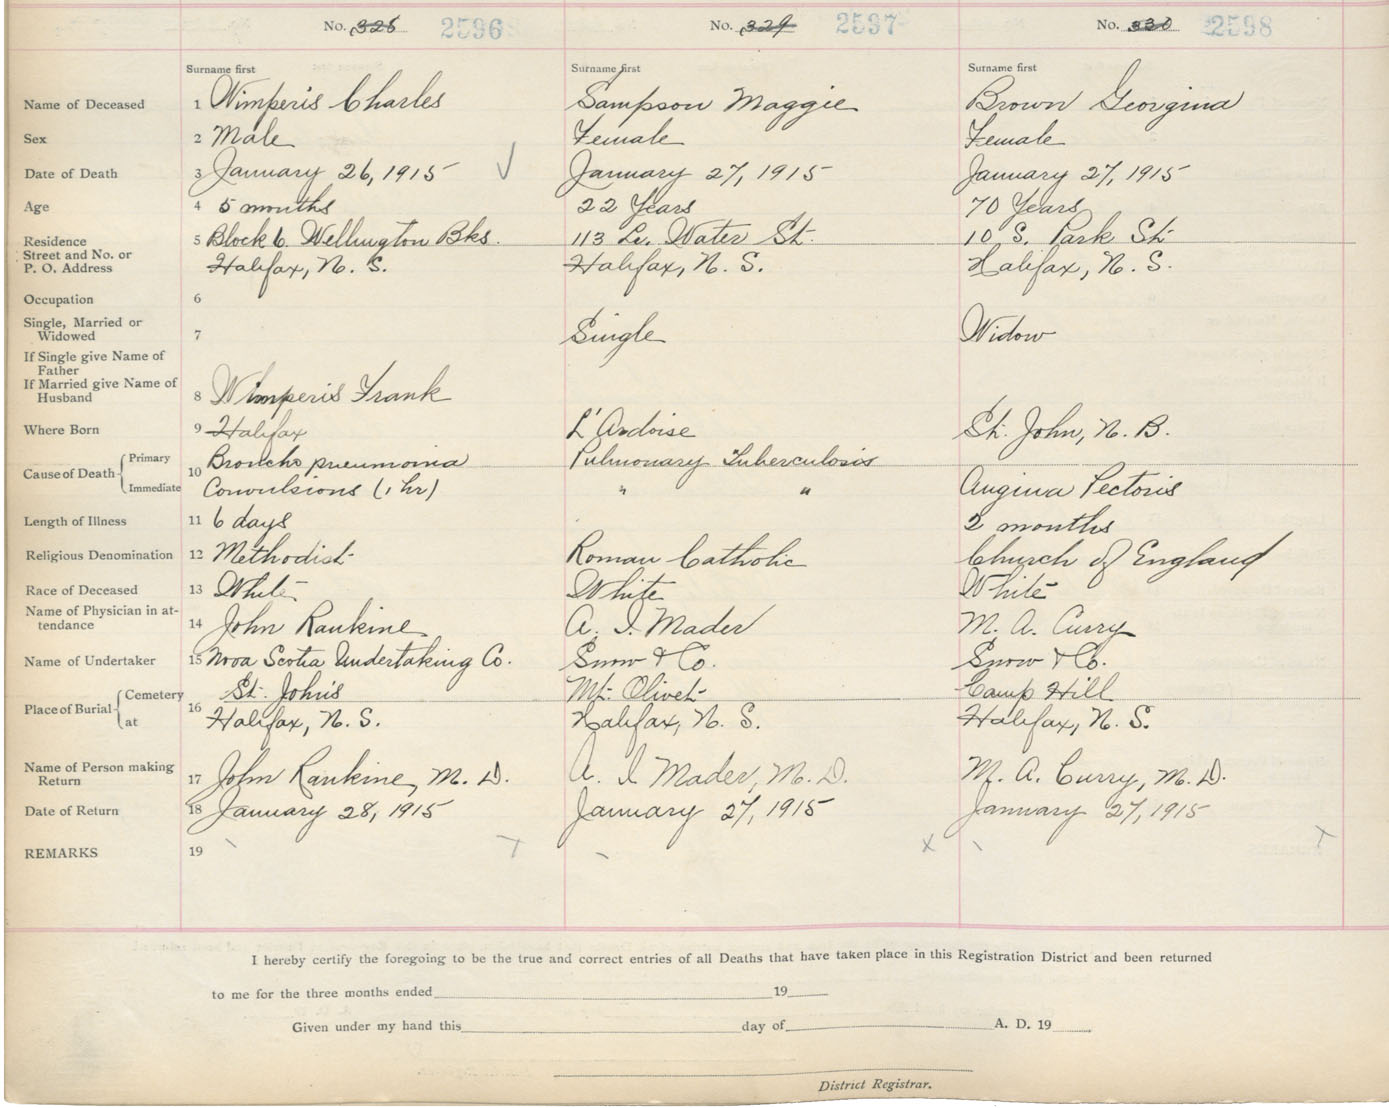 No. 328 2596 No. 329 2597 No. 330 2598
Surname first Surname first Surname first
Name of Deceased 1 Wimperis Charles Sampson Maggie Brown Georgina
Sex 2 Male Female Female
Date of Death 3 January 26, 1915 January 27, 1915 January 27, 1915
Age 4 5 months 22 Years 70 Years
Residence 5 Block 6. Wellington Bks. 113 Lr. Water St. 10 S. Park St.
Street and No. or
P. O. Address Halifax, N. S. Halifax, N. S. Halifax, N. S.
Occupation 6
Single, Married or
Widowed 7 Single Widow
If Single give Name of
Father
If Married give Name of
Husband 8 Wimperis Frank
Where Born 9 Halifax L'Ardoise St. John, N. B.
Cause of Death Primary 10 Broncho pneumonia Pulmonary Tuberculosis
Immediate Convulsions (1 hr) " " Angina Pectoris
Length of Illness 11 6 days 2 months
Religious Denomination 12 Methodist Roman Catholic Church of England
Race of Deceased 13 White White White
Name of Physician in at-
tendance 14 John Rankine A. I. Mader M. A. Curry
Name of Undertaker 15 Nova Scotia Undertaking Co. Snow & Co. Snow & Co.
Place of Burial Cemetery 16 St. John's Mt. Olivet Camp Hill
at Halifax, N. S. Halifax, N. S. Halifax, N. S.
Name of Person making
Return 17 John Rankine, M. D. A. I Mader, M. D. M. A. Curry, M. D.
Date of Return 18 January 28, 1915 January 27, 1915 January 27, 1915
REMARKS 19
I hereby certify the foregoing to be the true and correct entries of all Deaths that have taken place in this Registration District and been returned
to me for the three months ended 19
Given under my hand this day of A. D. 19
District Registrar.